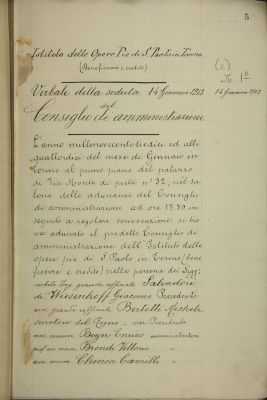 5
Istituto delle Opere Pie di S. Paolo in Torino
(Beneficenza e credito)
(2)
N. 1°
14 Gennaio 1913
Verbale della seduta 14 Gennaio 1913
del
Consiglio di amministrazione
L'anno millenovecentotredici ed alli
quattordici del mese di Gennaio in
Torino al primo piano del palazzo
di Via Monte di pietà n° 32, nel sa-
lone delle adunanze del Consiglio
di amministrazione ad ore 17.30 in
seguito a regolare convocazione si tro-
va adunato il predetto Consiglio di
amministrazione dell'Istituto delle
opere pie di S. Paolo in Torino (bene-
ficenza e credito) nelle persone dei Sigg:
nobile Ing. grande uffiziale Salvadori
di Wiesenhoff Giacomo Presidente
avv. grande uffiziale Bertetti Michele
senatore del Regno, vice Presidente
Boyer Enrico amministratore
Brondi Vittorio "
avv. Chinca Camillo "